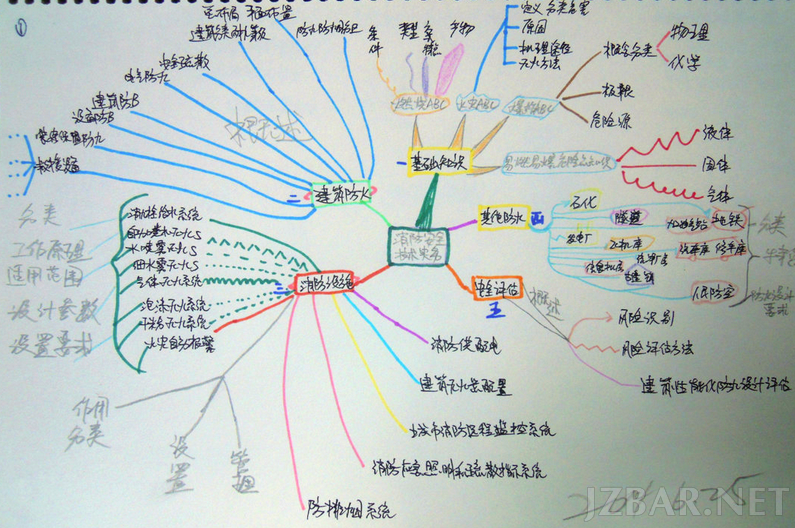 ①
总布局 平面布置
建筑分类耐火等级
防火防烟分区
安全疏散
建筑防B
设备防B
救援设施
概述
二
建筑防火
条件
类型
产物
燃烧ABC
火灾ABC
爆炸ABC
定义 分类危害
原因
机理途径
灭火方法
概念分类
物理
化学
极限
危险源
一
基础知识
易燃易爆危险品知识
液体
固体
气体
消防安全
技术实务
其他防火
四
石化
隧道
加油加气站
地铁
发电厂
飞机库
汽车库 修车库
信息机房
古建筑
人民防空
分类
防火设计
要求
分类
工作原理
适用范围
设计参数
设置要求
消火栓给水系统
自动喷水灭火S
水喷雾灭火S
细水雾灭火S
气体灭火系统
泡沫灭火系统
干粉灭火系统
火灾自动报警
三
消防设施
作用
分类
设置
管理
安全评估
五
概述
风险识别
风险评估方法
建筑性能化防火设计评估
消防供配电
建筑灭火器配置
城市消防远程监控系统
消防应急照明和疏散指示系统
防排烟系统
2015.6.25
JZBAR.NET